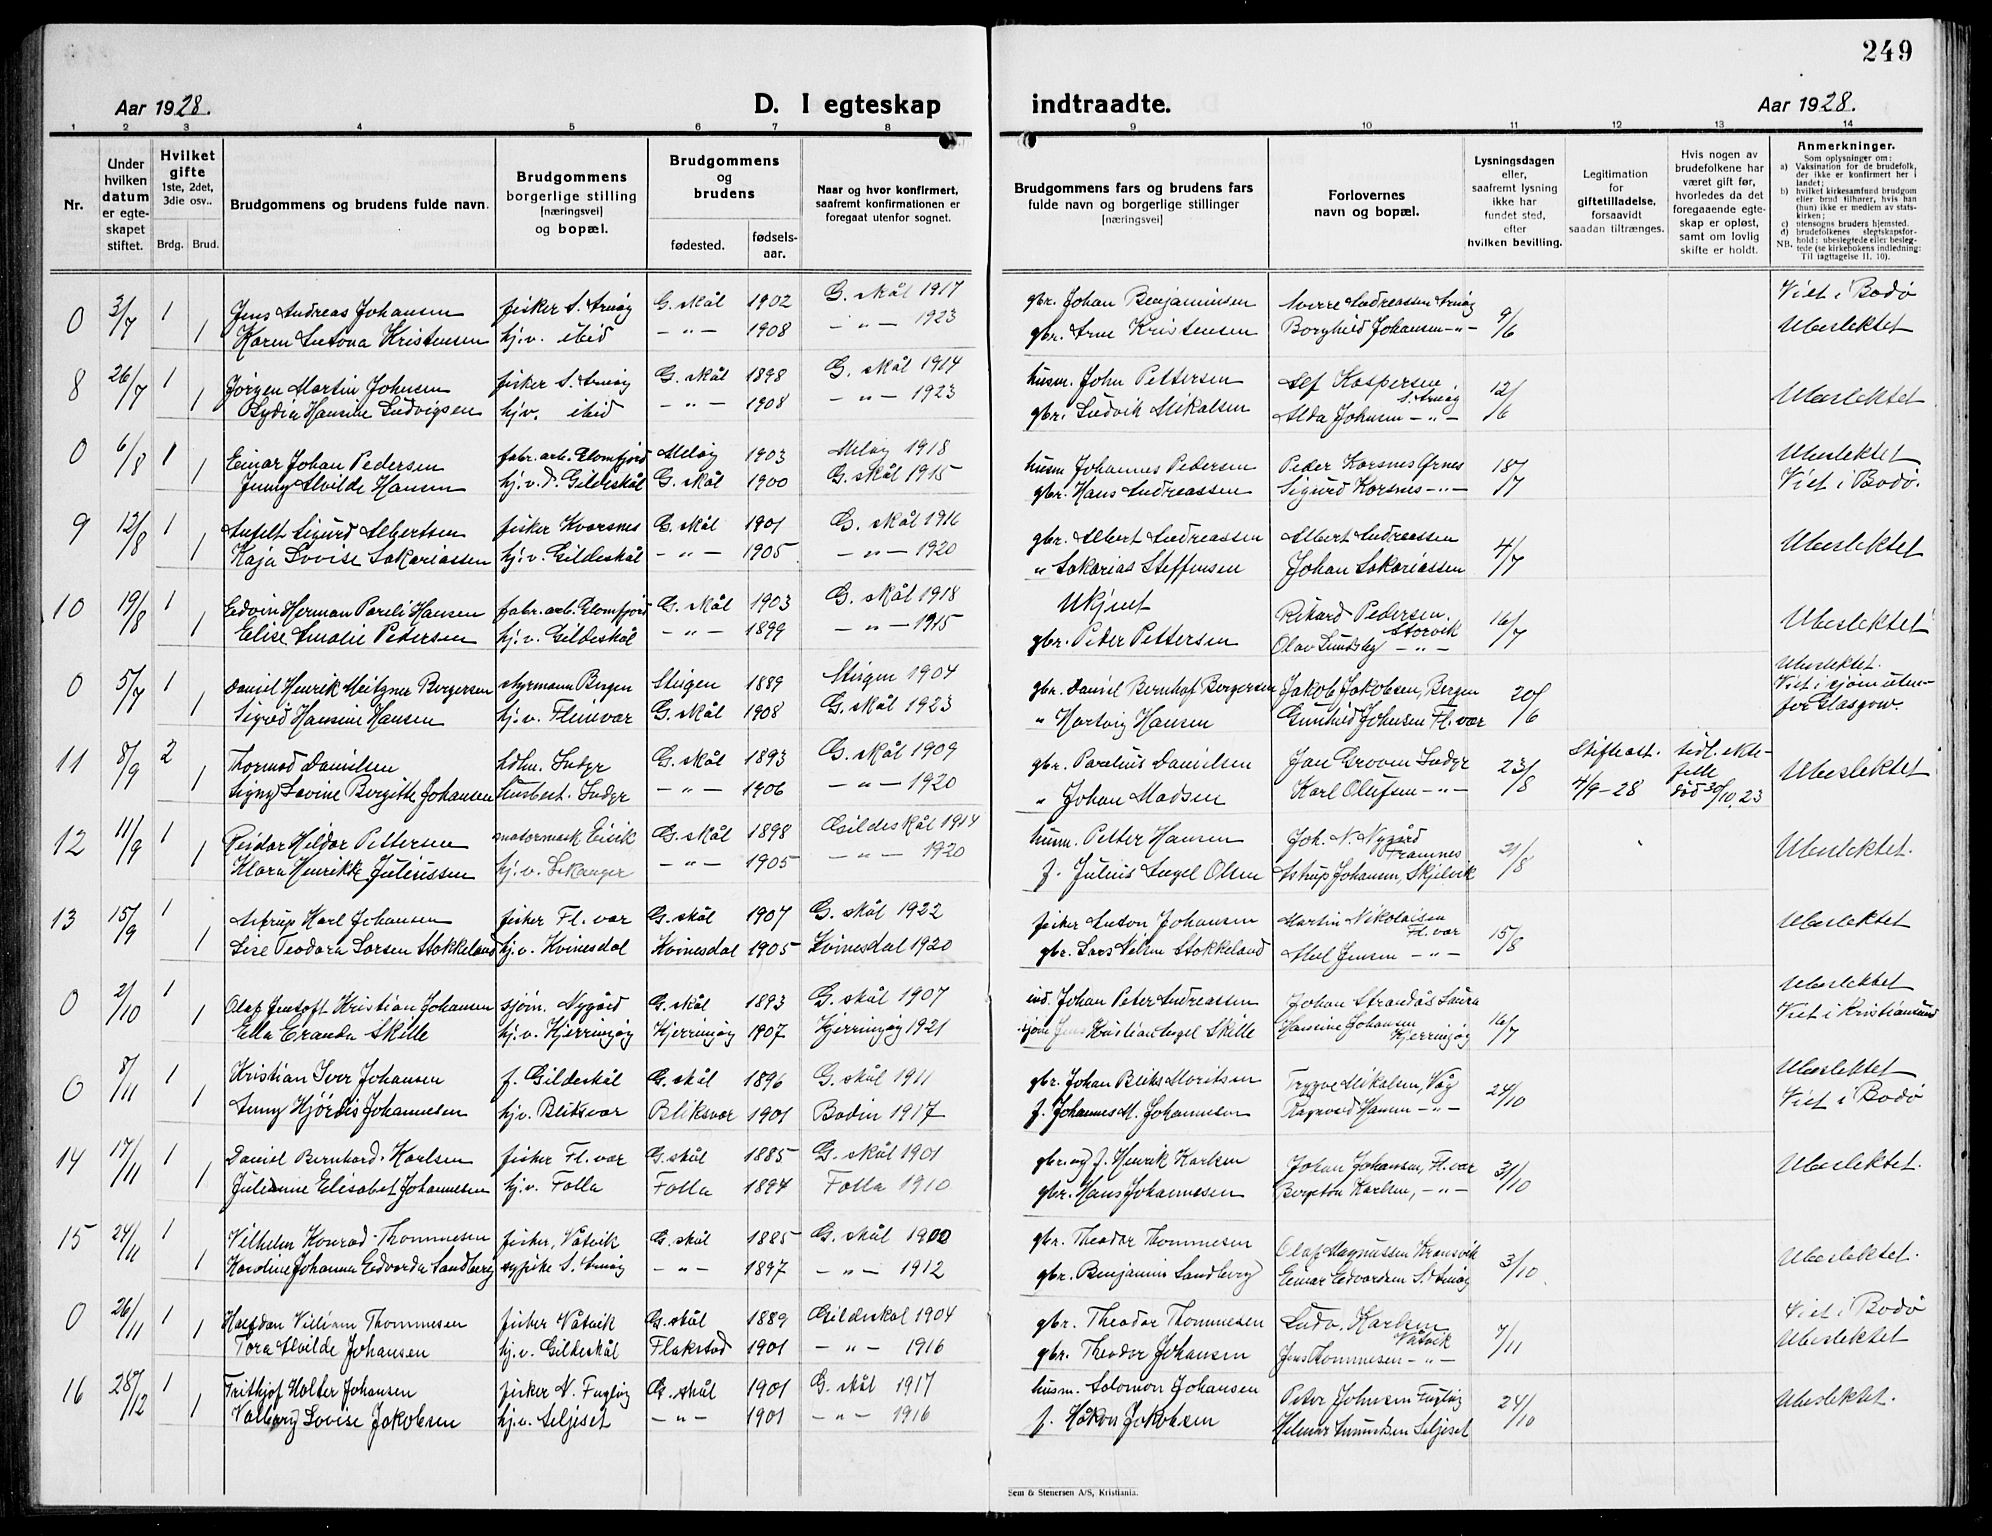 249
Aar 1928.
D. I egteskap
indtraadte.
Aar 1928.
1 2 3 4 5 6 7 8 9 10 11 12 13 14
Nr.
Under hvilken datum er egteskapet stiftet.
Hvilket gifte 1ste, 2det, 3die osv..
Brdg. Brud.
Brudgommens og brudens fulde navn.
Brudgommens borgerlige stilling [næringsvei] og bopæl.
Brudgommens og brudens
fødested.
fødselsaar.
Naar og hvor konfirmert, saafremt konfirmationen er foregaat utenfor sognet.
Brudgommens fars og brudens fars fulde navn og borgerlige stillinger [næringsvei]
Forlovernes navn og bopæl.
Lysningsdagen eller, saafremt lysning ikke har fundet sted, efter hvilken bevilling.
Legitimation for giftetilladelse, forsaavidt saadan tiltrænges.
Hvis nogen av brudefolkene har været gift før, hvorledes da det foregaaende egteskap er opløst, samt om lovlig skifte er holdt.
Anmerkninger.
Som oplysninger om:
a) Vaksination for de brudefolk, der ikke er konfirmert her i landet;
b) hvilket kirkesamfund brudgom eller brud tilhører, hvis han (hun) ikke er medlem av statskirken;
c) utensogns bruders hjemsted.
d) brudefolkenes slegtskapsforhold: ubeslegtede eller beslegtede (se kirkebokens indledning:
NB. Til iagttagelse II. 10).
0 3/7 1 Jens Andreas Johansen fisker S. Arnøy G. skål 1902 G. skål 1917 gbr. Johan Benjaminsen Sverre Andreassen Arnøy 9/6 Viet i Bodø
1 Karen Antona Kristensen hj.v. ibid -"- 1908 -"- 1923 gbr. Arne Kristensen Borghild Johansen -"- Ubeslektet
8 26/7 1 Jörgen Martin Johnsen fisker S. Arnøy G. skål 1898 G. skål 1914 husm. John Pettersen Alf Kaspersen S. Arnøy 12/6 Ubeslektet
1 Lydia Hansine Ludvigsen hj.v. ibid -"- 1908 -"- 1923 gbr. Ludvik Mikalsen Alda Johnsen -"-
0 6/8 1 Einar Johan Pedersen fabr. arb. Glomfjord Meløy 1903 Meløy 1918 husm Johannes Pedersen Peder Korsnes Ørnes 18/7 Ubeslektet
1 Jenny Alvilde Hansen hj.v. d. Gildeskål G. skål 1900 G. skål 1915 gbr. Hans Andreassen Sigurd Korsnes -"- Viet i Bodø.
9 12/8 1 Anfelt Sigurd Albertsen fisker Kvarsnes G. skål 1901 G. skål 1916 gbr. Albert Andreassen Albert Andreassen 4/7 Ubeslektet
1 Kaja Lovise Sakariassen hj.v. Gildeskål -"- 1905 -"- 1920 " Sakarias Steffensen Johan Sakariassen
10 19/8 1 Edvin Herman Pareli Hansen fabr. arb. Glomfjord G. skål 1903 G. skål 1918 Ukjent Rikard Pedersen. Storvik 16/7 Ubeslektet
1 Elise Amalie Pedersen hj.v. Gildeskål -"- 1899 -"- 1915 gbr. Peder Pettersen Olav Sundsby -"-
0 5/7 1 Daniel Henrik Meitzner Bergersen styrmann Bergen Steigen 1889 Steigen 1904 gbr. Daniel Bernhof Bergersen Jakob Jakobsen, Bergen 20/6 Ubeslektet.
1 Sigrid Hansine Hansen hj.v. Fleinvær G. skål 1908 G. skål 1923 " Hartvig Hansen Gunhild Johnsen Fl. vær Viet i sjøen utenfor Glasgow.
11 8/9 2 Thormod Danielsen hdlm. Indyr G. skål 1893 G. skål 1909 gbr. Parelius Danielsen Jan Groven Indyr 23/8 Skifteatt. 4/9-28 tidl. ektefelle død 30/10.23 Ubeslektet
1 Signy Lovine Bergitte Johansen Husbest. Indyr -"- 1906 -"- 1920 " Johan Madsen Karl Olufsen -"-
12 11/9 1 Reidar Hildor Pettersen motormask Eivik G. skål 1898 Gildeskål 1914 husm. Petter Hansen Joh. N. Nygård Framnes 21/8 Ubeslektet.
1 Klara Henrikke Juliussen hj.v. Lekanger -"- 1905 -"- 1920 f. Julius Angel Olsen Astrup Johansen, Skjelvik
13 15/9 1 Astrup Karl Johansen fisker Fl. vær G. skål 1907 G. skål 1922 fisker Anton Johansen Martin Nikolaisen Fl. vær 15/8 Ubeslektet
1 Lise Teodora Larsen Stokkeland hj.v. Kvinesdal Kvinesdal 1905 Kvinesdal 1920 gbr. Lars Nilsen Stokkeland Abel Jensen -"-
0 2/10 1 Olaf Jentoft Kristian Johansen sjöm. Nygård G. skål 1893 G. skål 1907 ind. Johan Peter Andreassen Johan Strandås Saura 16/7 Ubeslektet
1 Ella Eranda Skille hj.v. Kjerringøy Kjerringøy 1907 Kjerringøy 1921 sjöm Jens Kristian Angel Skille Hansine Johansen Kjerringøy Viet i Kristiansund
0 8/11 1 Kristian Iver Johansen f. Gildeskål G. skål 1896 G. skål 1911 gbr. Johan Bliks Moritsen Trygve Mikalsen, Våg 24/10 Ubeslektet
1 Jenny Hjördis Johannesen hj.v. Bliksvær Bliksvær 1901 Bodin 1917 f. Johannes M. Johannesen Ragnvard Hansen -"- Viet i Bodø
14 17/11 1 Daniel Bernhard Karlsen fisker Fl. vær G. skål 1885 G. skål 1901 gbr. og f. Henrik Karlsen Johan Johansen, Fl. vær 3/10 Ubeslektet.
1 Julianne Elisabet Johannesen hj.v. Folla Folla 1894 Folla 1910 gbr. Hans Johannesen Bergeton Karlsen, -"-
15 24/11 1 Vilhelm Konrad Thommesen fisker, Våtvik G. skål 1885 G. skål 1900 gbr. Theodor Thommesen Olaf Magnussen Kransvik 3/10 Ubeslektet.
1 Karoline Johanna Edvarda Sandberg sypike S. Arnøy -"- 1897 -"- 1912 gbr. Benjamin Sandberg Einar Edvardsen S. Arnøy
0 26/11 1 Halfdan Villiam Thommesen fisker Våtvik G. skål 1889 Gildeskål 1904 gbr. Theodor Thommesen Ludv. Karlsen Våtvik 7/11 Viet i Bodø
1 Tora Alvilde Johansen hj.v. Gildeskål Flakstad 1901 -"- 1916 gbr. Theodor Johansen Jens Thommesen -"- Ubeslektet
16 28/12 1 Frithjof Holter Johansen fisker N. Fugløy G. skål 1901 G. skål 1917 husm. Salomon Johansen Peter Johnsen Fugløy 24/10 Ubeslektet.
1 Valborg Lovise Jakobsen hj.v. Seljeset -"- 1901 -"- 1916 f. Håkon Jakobsen Helmer Amundsen Seljeset
Sem & Stenersen A/S, Kristiania.